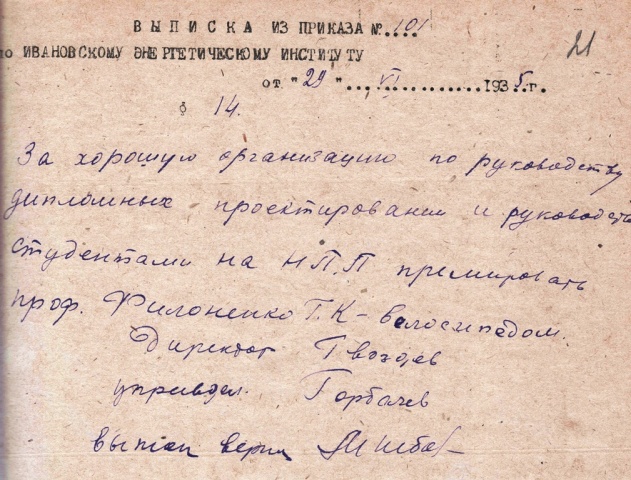 ВЫПИСКА ИЗ ПРИКАЗА № 101
по ИВАНОВСКОМУ ЭНЕРГЕТИЧЕСКОМУ ИНСТИТУТУ
21
от "29" VI 1935 г.
§ 14.
За хорошую организацию по руководству
дипломных проектировании и руководство
студентами на НПП премировать
проф. Филоненко Г.К – велосипедом.
Директор Гвоздев
управдел. Горбачев
верна